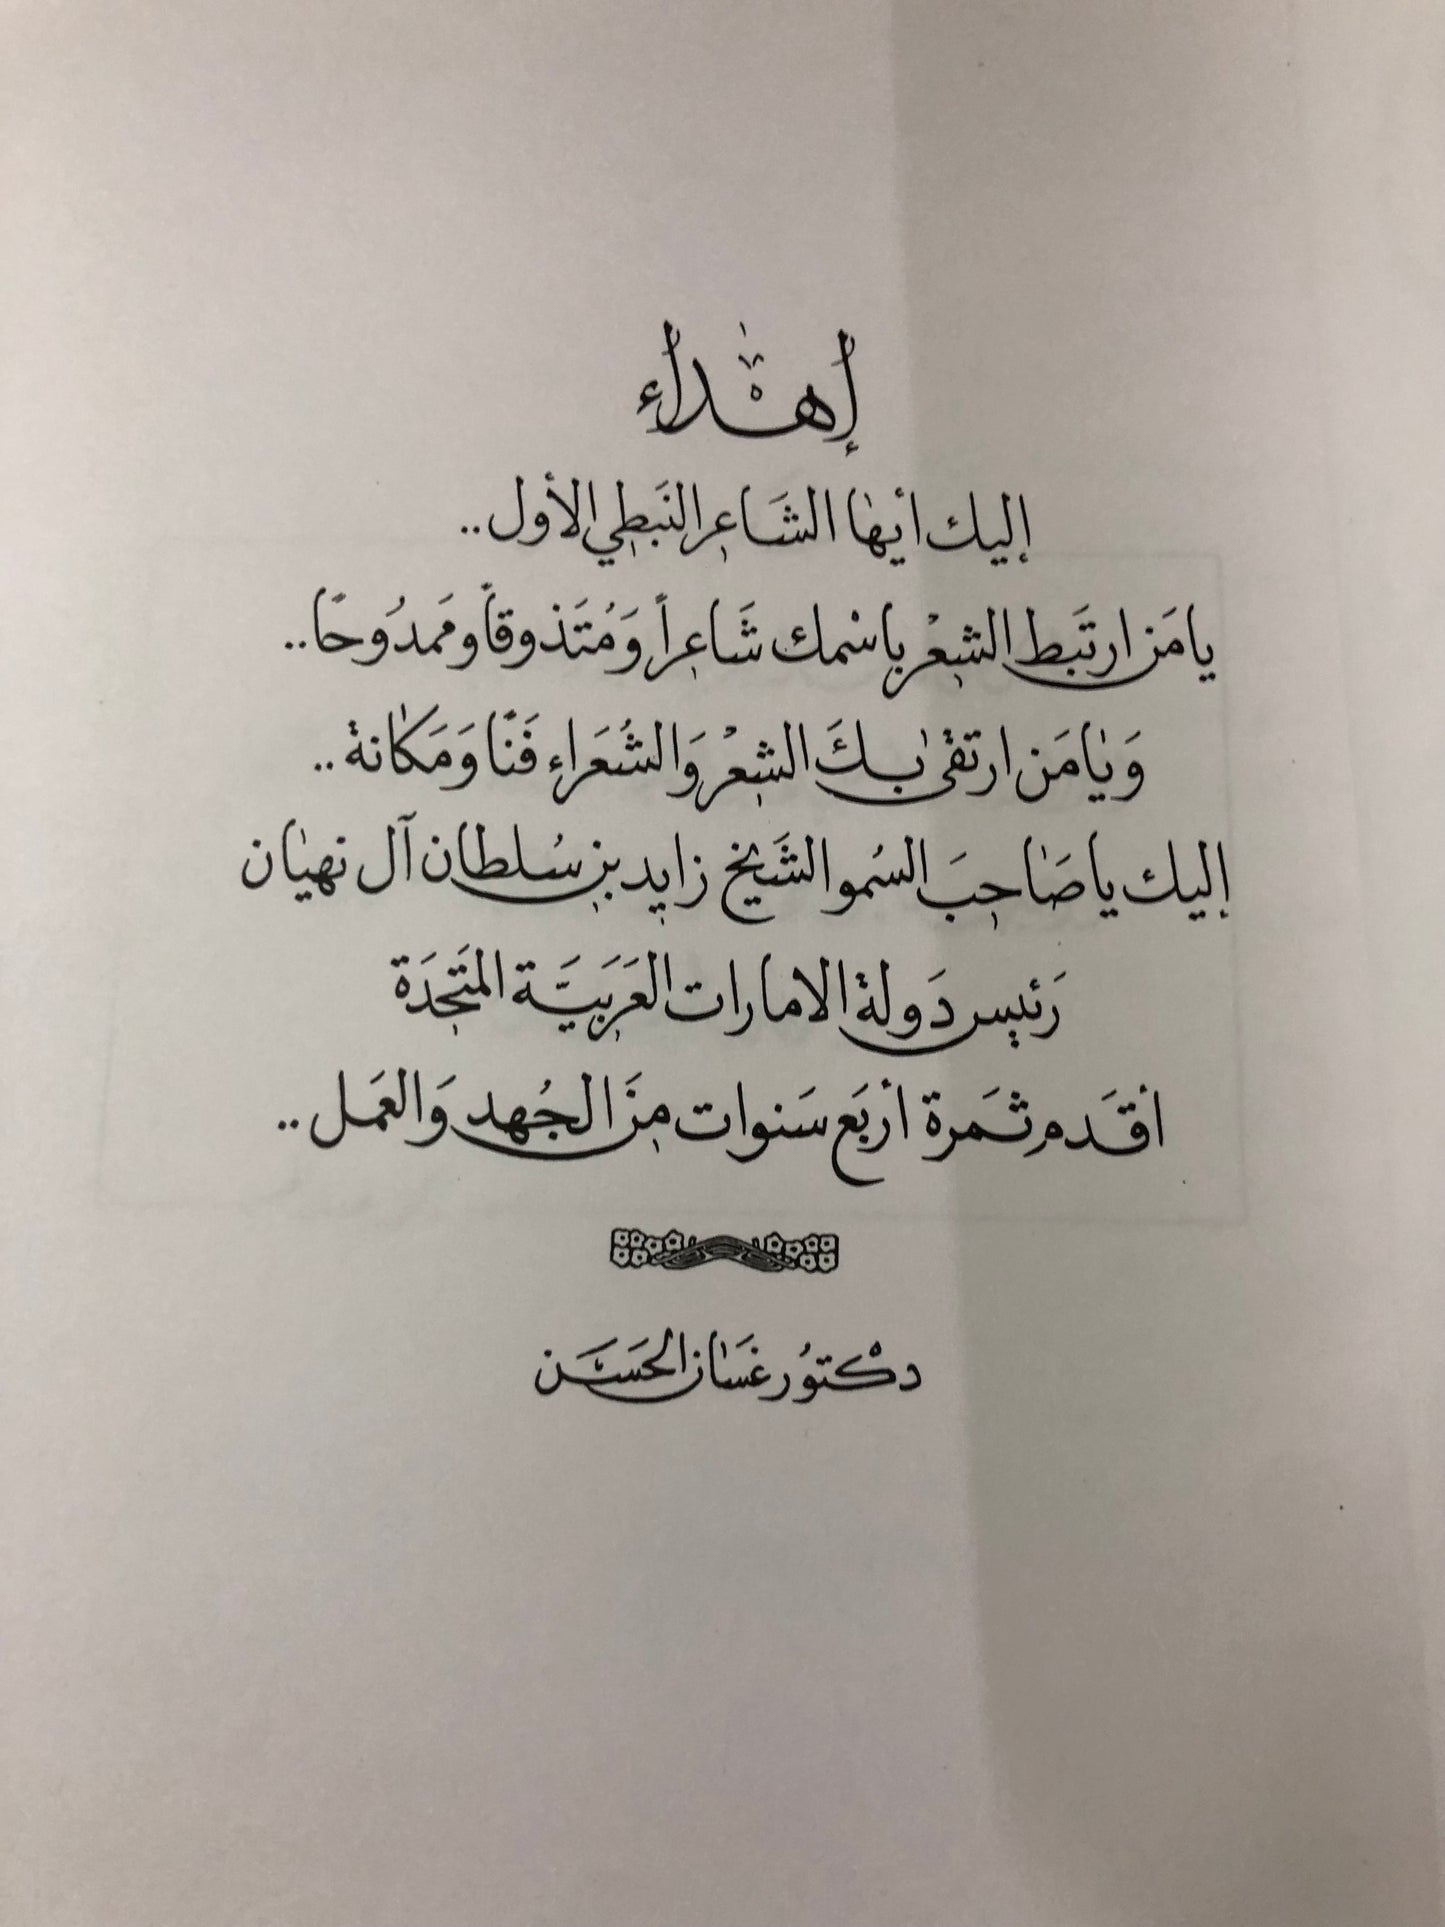 إهداء
إليك أيها الشَاعِر النَبطِي الأول ..
يا مَن ارتَبط الشِعْر باسْمك شَاعِراً وَمُتَذوقاً وممدُوحًا ..
وَيا مَن ارتقى بكَ الشِعْر وَالشُعَراء فَنًا وَمَكانة ..
إليك يا صَاحِبَ السُمو الشَيخ زايد بن سُلطان آل نهيان
رَئيس دَولة الامارات العَرَبيَّة المتَحِدَة
اقدَم ثمَرة أربَع سَنوات مِنَ الجُهد وَالعَمل ..
دكْتوُر غسَان الحَسَن